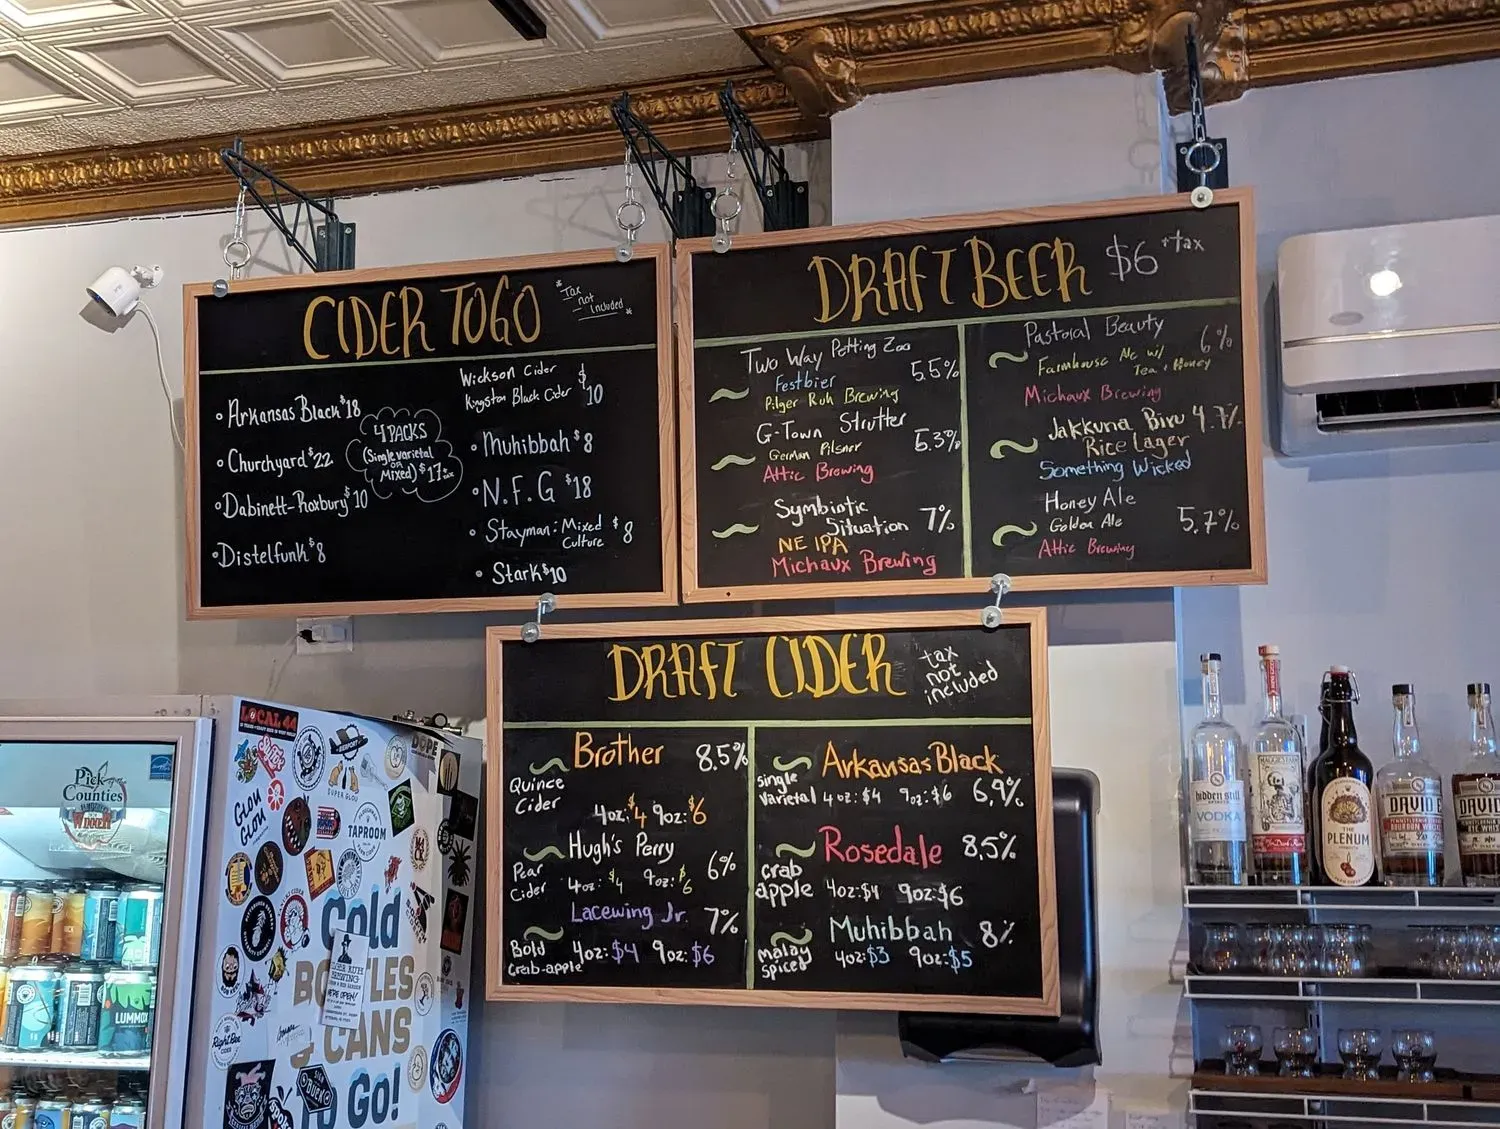 CIDER TOGO
*Tax
not
included*
Arkansas Black $18
Churchyard $22
Dabinett-Roxbury $10
Distelfunk $8
4 PACKS
(Single varietal
OR
Mixed) $17
Wickson Cider
Kingston Black Cider $10
Muhibbah $8
N.F.G $18
Stayman: Mixed
Culture $8
Stark $10
DRAFT BEER $6 +tax
Two Way Petting Zoo
Festbier 5.5%
Pilger Ruh Brewing
G-Town Strutter
German Pilsner 5.3%
Attic Brewing
Symbiotic
Situation 7%
NE IPA
Michaux Brewing
Pastoral Beauty 6%
Farmhouse Ale w/
Tea + Honey
Michaux Brewing
Jakkuna Biru 4.7%
Rice Lager
Something Wicked
Honey Ale
Golden Ale 5.7%
Attic Brewing
DRAFT CIDER
tax
not
included
Brother 8.5%
Quince
Cider
4oz: $4 9oz: $6
Hugh's Perry 6%
Pear
Cider
4oz: $4 9oz: $6
Lacewing Jr. 7%
Bold
Crab-apple
4oz: $4 9oz: $6
Arkansas Black
single
varietal 4oz: $4 9oz: $6 6.9%
Rosedale 8.5%
crab
apple 4oz: $4 9oz: $6
Muhibbah 8%
malay
spiced
4oz: $3 9oz: $5
Pick
Counties
WINNER
LOCAL 44
DOPE
SUPER GLOU
GLOU
GLOU
TAPROOM
Cold
BOTTLES
& CANS
TO GO!
PILGER RUH
BREWING
Right Bee
LUMMOX
hidden still
VODKA
THE
PLENUM
DAVID E
BOURBON WHISKEY
DAVID